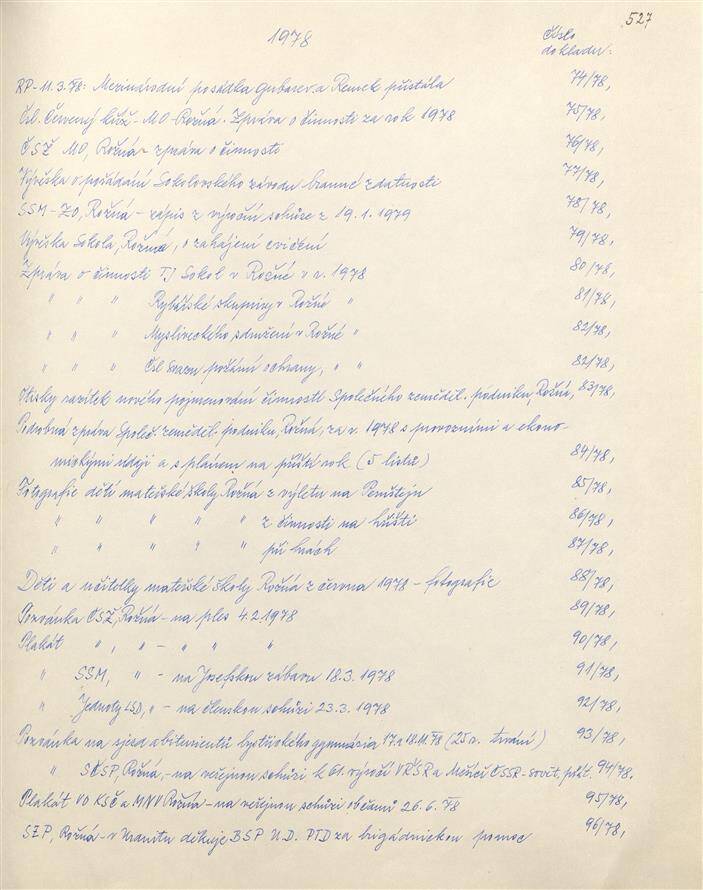 527
1978
Číslo
dokladu:
RP-11.3.78: Mezinárodní posádka Gubarev a Remek přistála 74/78,
Čsl. Červený kříž - MO-Rožná. Zpráva o činnosti za rok 1978 75/78,
ČSŽ MO, Rožná - zpráva o činnosti 76/78,
Vývěska o pořádání Sokolovského závodu branné zdatnosti 77/78,
SSM-ZO, Rožná - zápis z výroční schůze z 19.1.1979 78/78,
Vývěska Sokola, Rožná, o zahájení cvičení 79/78,
Zpráva o činnosti TJ Sokol v Rožné v r. 1978 80/78,
" " " Rybářské skupiny v Rožné " 81/78,
" " " Mysliveckého sdružení v Rožné " 82/78,
" " " Čsl svazu požární ochrany, " " 82/78,
Otisky razítek nového pojmenování činností Společného zeměděl. podniku, Rožná, 83/78,
Podrobná zpráva Společ. zeměděl. podniku, Rožná, za r. 1978 s provozními a ekono-
mickými údaji a s plánem na příští rok (5 listů) 84/78,
Fotografie dětí mateřské školy Rožná z výletu na Pernštejn 85/78,
" " " " " z činnosti na hřišti 86/78,
" " " " " při hrách 87/78,
Děti a učitelky mateřské školy Rožná z června 1978 - fotografie 88/78,
Pozvánka ČSŽ, Rožná - na ples 4.2.1978 89/78,
Plakát " , " - " " " 90/78,
" SSM, " - na Josefskou zábavu 18.3.1978 91/78,
" Jednoty LSD, " - na členskou schůzi 23.3.1978 92/78,
Pozvánka na sjezd abiturientů bystřického gymnásia 17. a 18.11.78 (25 r. trvání) 93/78,
" SČSP, Rožná, - na veřejnou schůzi k 61. výročí VŘSR a Měsíci ČSSR-sovět. přát. 94/78.
Plakát VO KSČ a MNV Rožná - na veřejnou schůzi občanů 26.6.78 95/78,
SZP, Rožná - v Uranitu děkuje BSP U.D. PTD za brigádnickou pomoc 96/78,